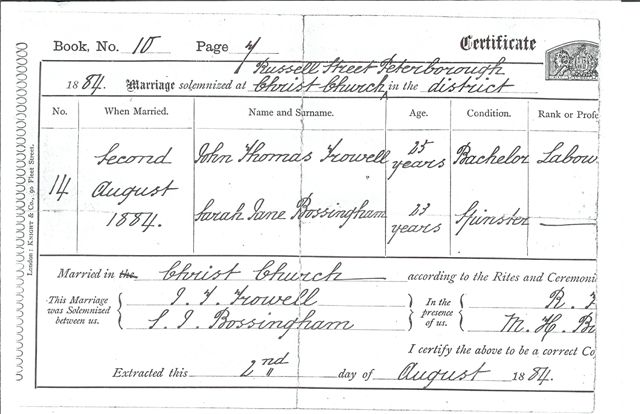 Book, No. 10 Page 7 Certificate
Russell Street Peterborough
1884. Marriage solemnized at Christ Church in the district
No. When Married. Name and Surname. Age. Condition. Rank or Profe
Second John Thomas Trowell 25 years Bachelor Labou
14 August
1884. Sarah Jane Bossingham 23 years Spinster
Married in the Christ Church according to the Rites and Ceremoni
This Marriage was Solemnized between us. J. T. Trowell In the presence of us. R.
S. J. Bossingham M. H.
I certify the above to be a correct Co
Extracted this 2nd day of August 1884.
London: Knight & Co., 90 Fleet Street.